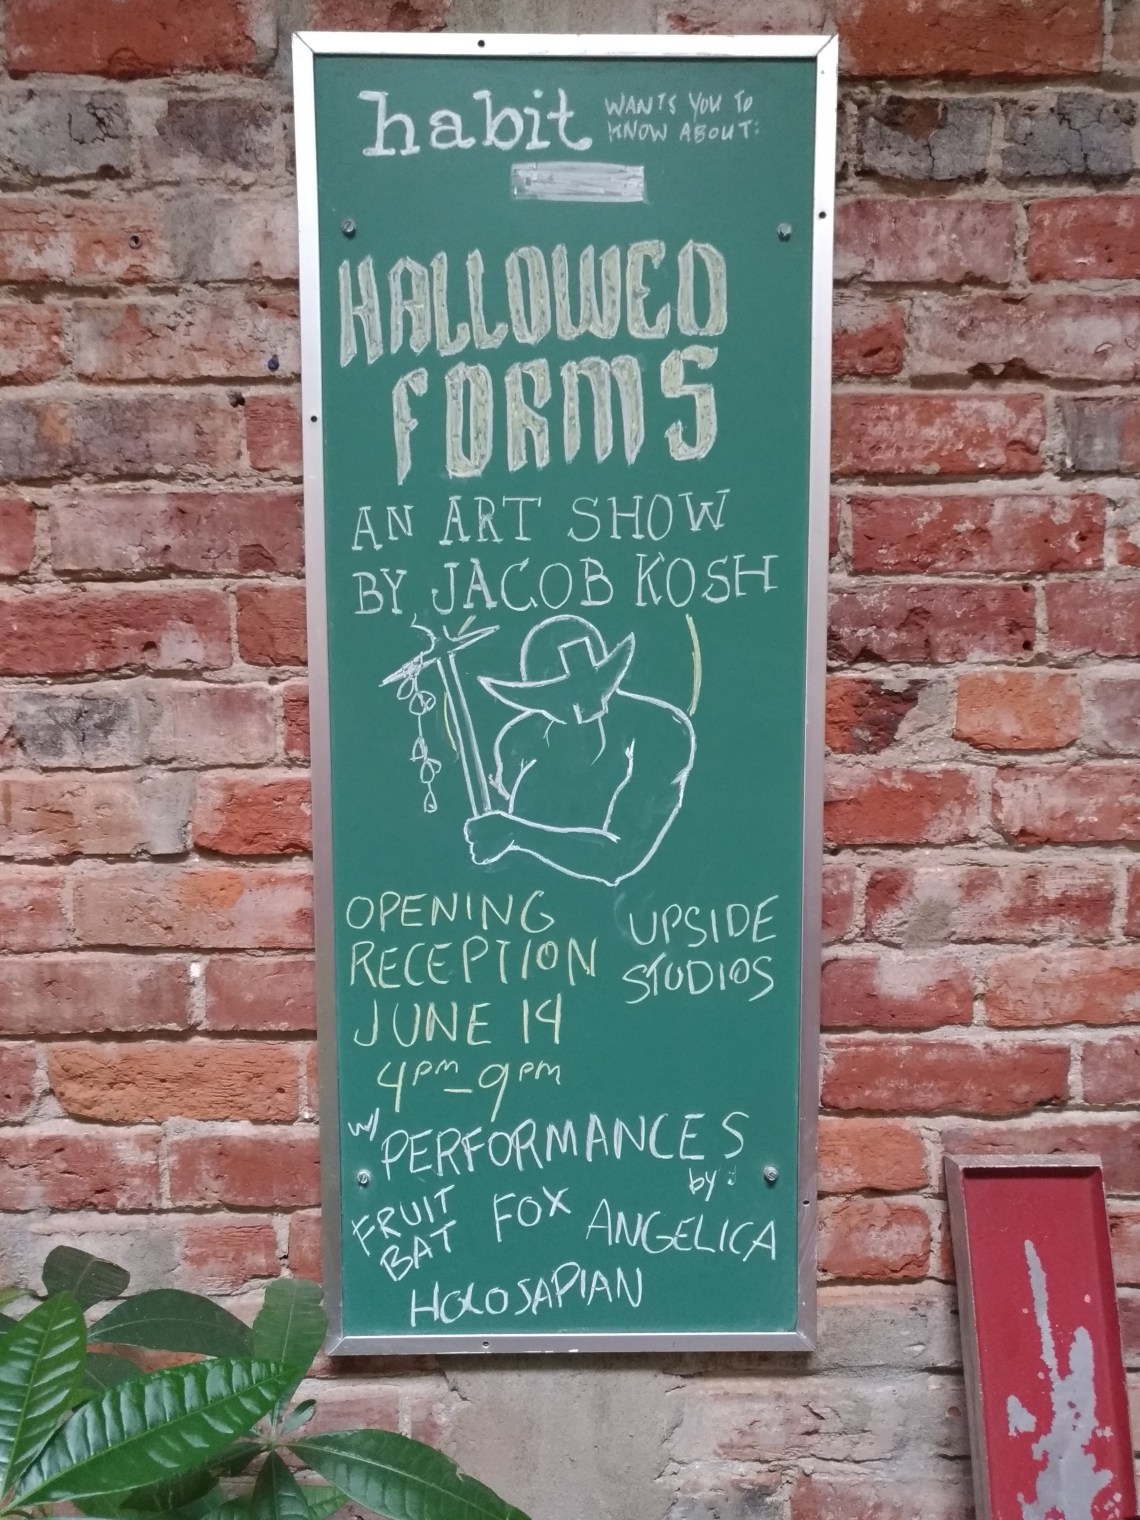 habit WANTS YOU TO
KNOW ABOUT:
HALLOWED
FORMS
AN ART SHOW
BY JACOB KOSH
OPENING
RECEPTION
JUNE 14
4PM-9PM
UPSIDE
STUDIOS
w/ PERFORMANCES
by:
FRUIT
BAT
FOX
ANGELICA
HOLOSAPIAN